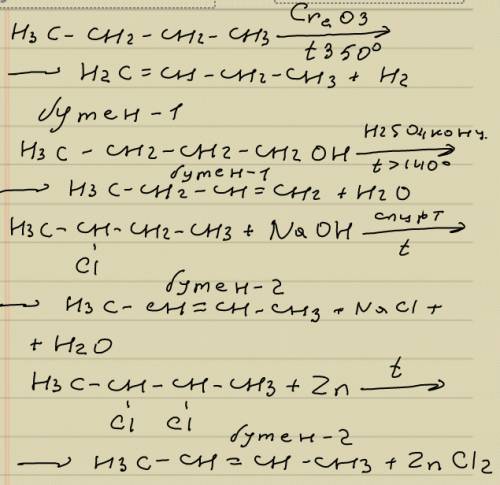 H3C - CH2 - CH2 - CH3 Cr2O3 t 350°
→ H2C = CH - CH2 - CH3 + H2
бутен-1
H3C - CH2 - CH2 - CH2OH H2SO4 конц. t>140°
бутен-1
→ H3C - CH2 - CH = CH2 + H2O
H3C - CH - CH2 - CH3 + NaOH спирт t
Cl
бутен-2
→ H3C - CH = CH - CH3 + NaCl +
+ H2O
H3C - CH - CH - CH3 + Zn t →
Cl Cl
бутен-2
→ H3C - CH = CH - CH3 + ZnCl2